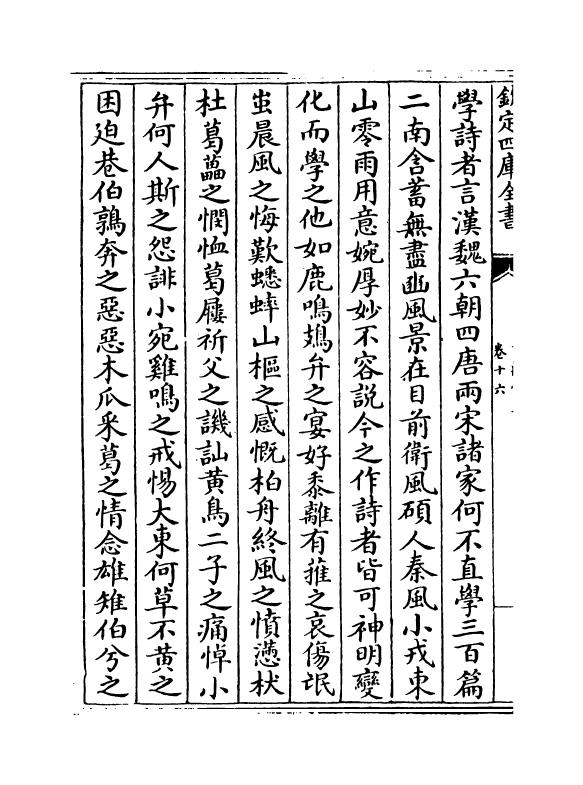 欽定四庫全書
卷十六
學詩者言漢魏六朝四唐兩宋諸家何不直學三百篇
二南含蓄無盡豳風景在目前衛風碩人秦風小戎東
山零雨用意婉厚妙不容說今之作詩者皆可神明變
化而學之他如鹿鳴頍弁之宴好黍離有蓷之哀傷氓
蚩晨風之悔歎蟋蟀山樞之感慨柏舟終風之憤懣杕
杜葛藟之憫恤葛屨祈父之譏訕黃鳥二子之痛悼小
弁何人斯之怨誹小宛雞鳴之戒惕大東何草不黃之
困迫巷伯鶉奔之惡惡木瓜采葛之情念雄雉伯兮之